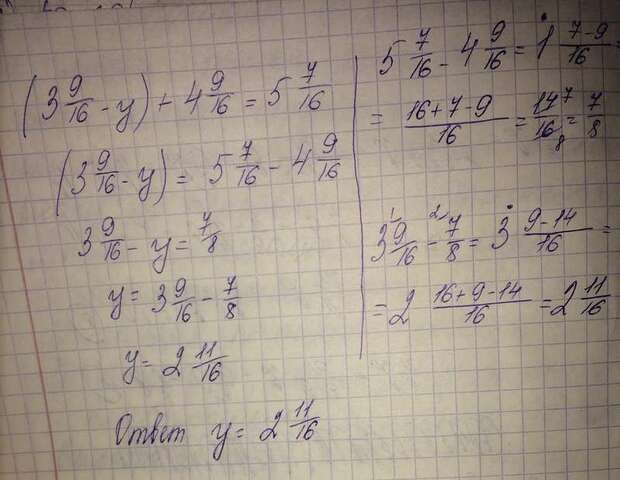 (3 9/16 - y) + 4 9/16 = 5 7/16
(3 9/16 - y) = 5 7/16 - 4 9/16
3 9/16 - y = 7/8
y = 3 9/16 - 7/8
y = 2 11/16
Ответ y = 2 11/16
5 7/16 - 4 9/16 = 1 7-9/16 =
= 16+7-9/16 = 14/16 7/8 = 7/8
3 9/16 1 - 7/8 2 = 3 9-14/16 =
= 2 16+9-14/16 = 2 11/16